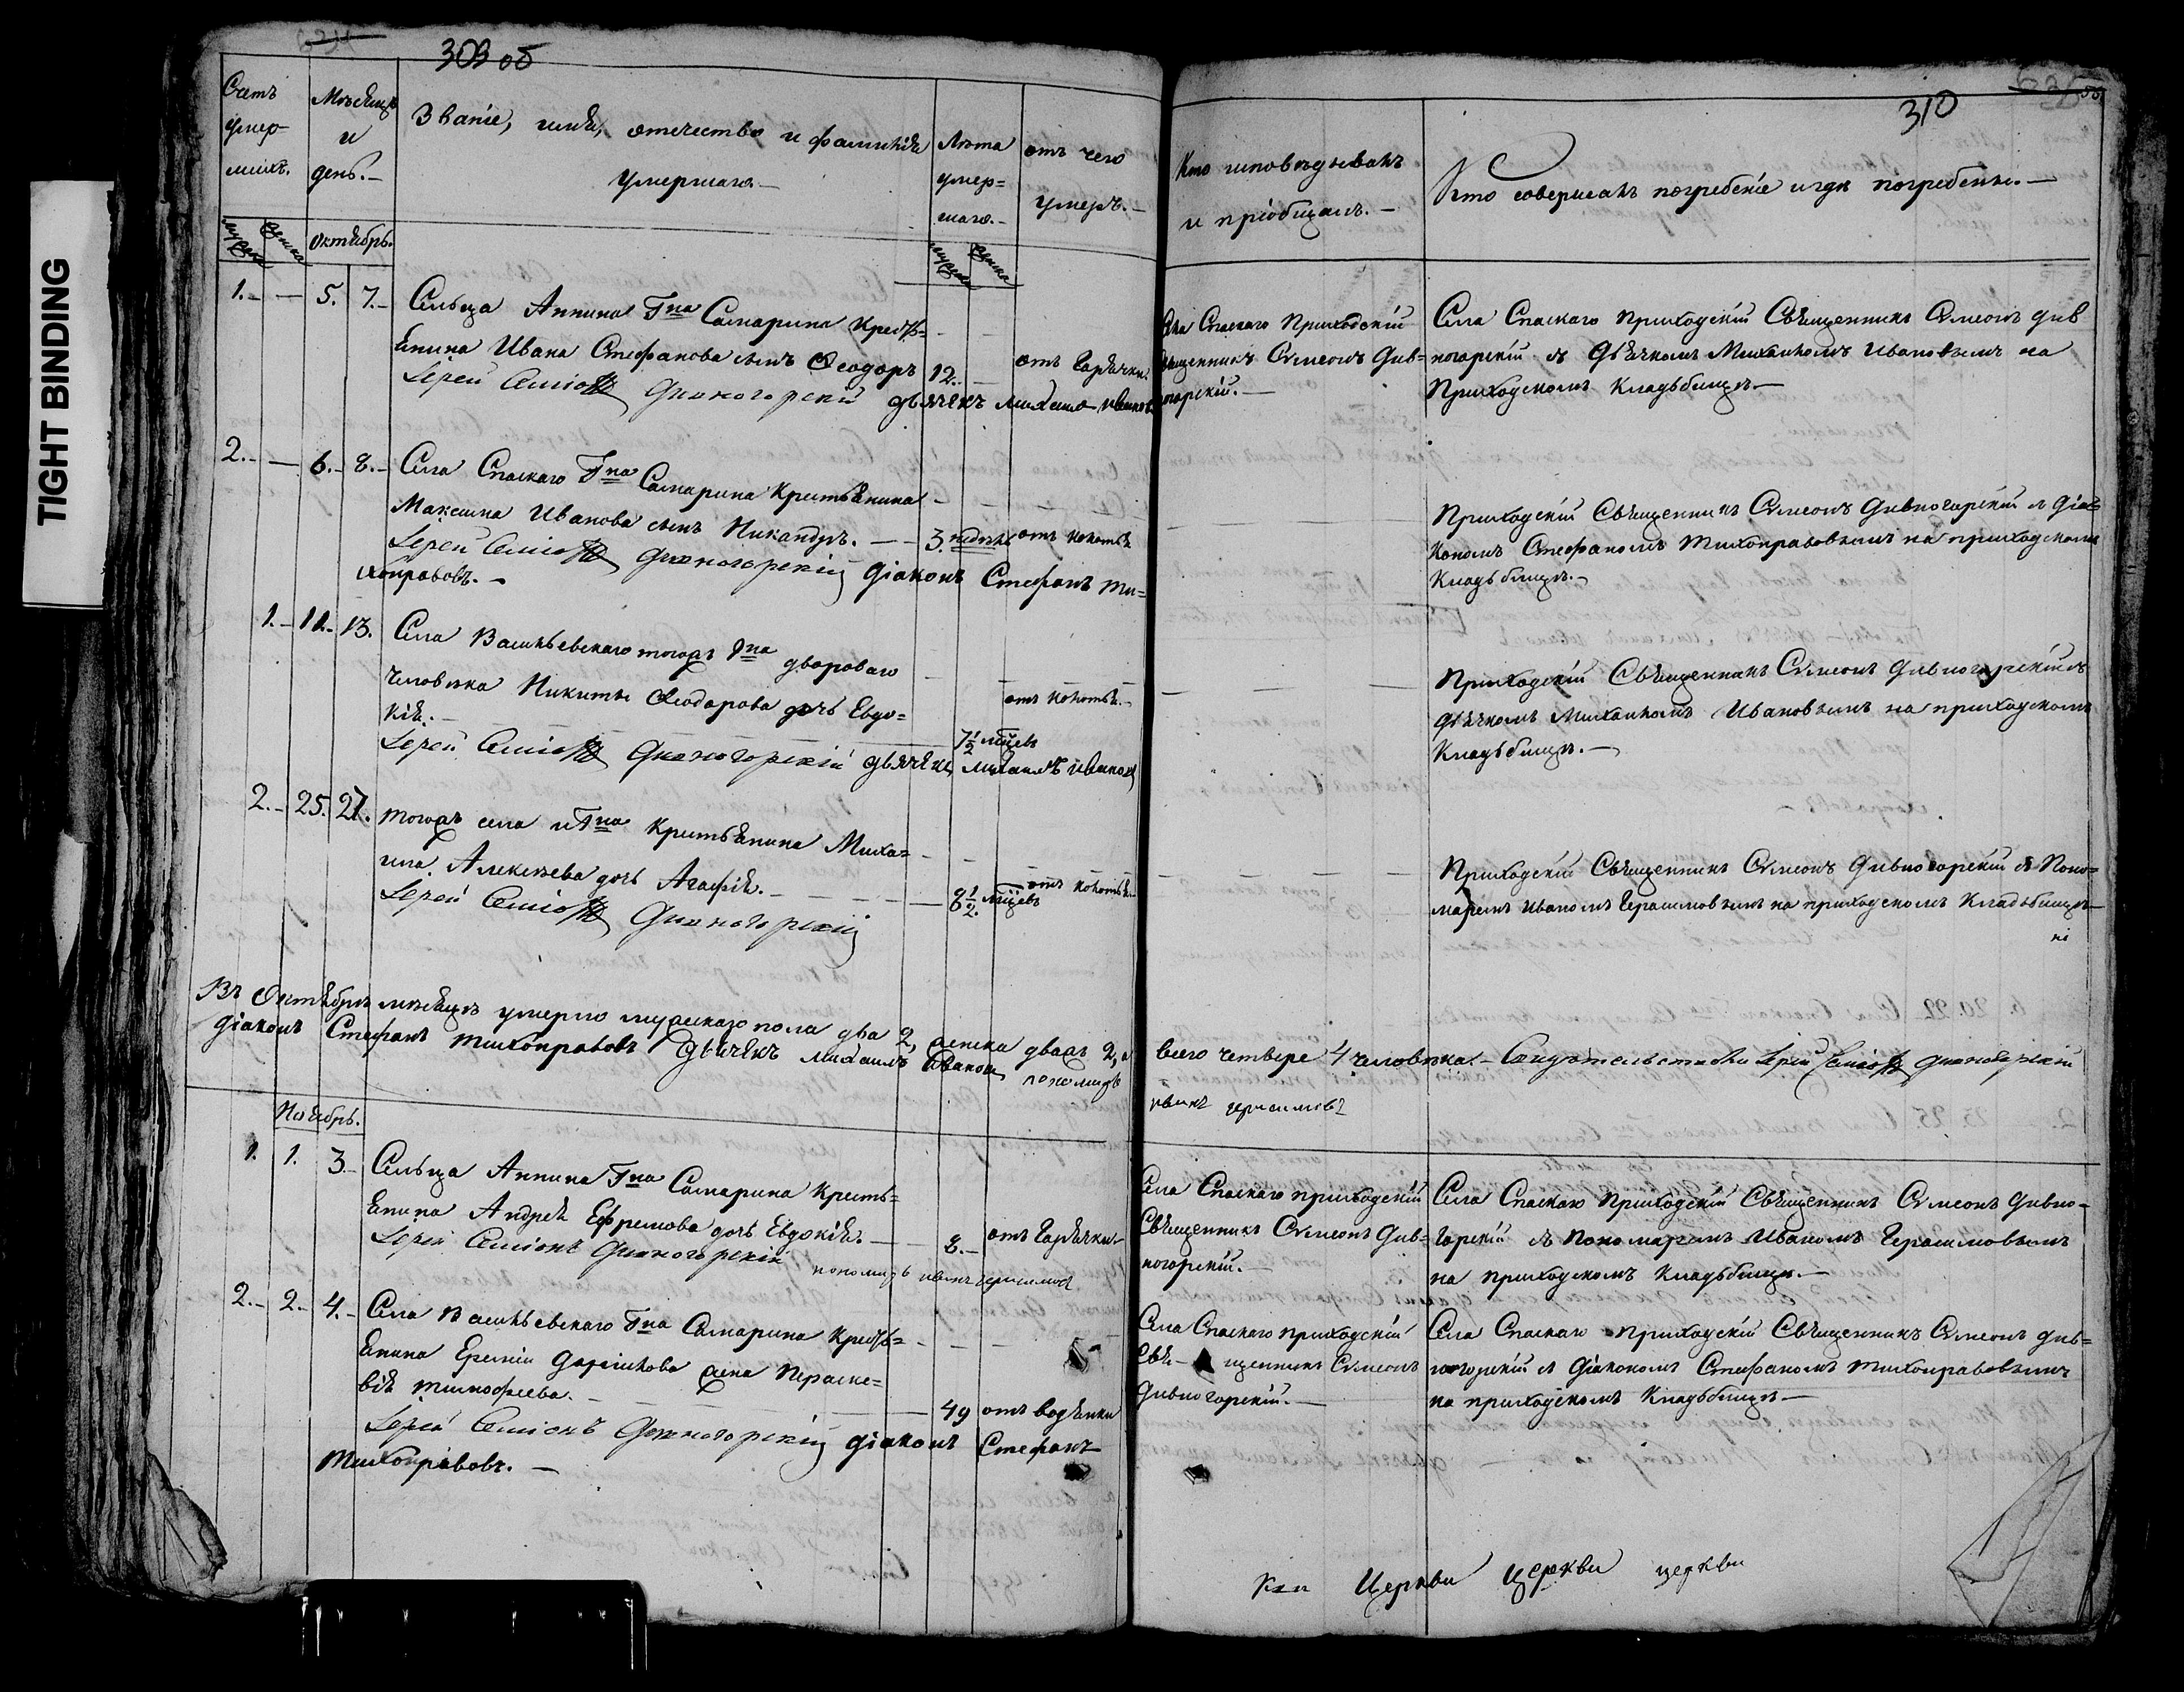 TIGHT BINDING
309 об
310
Счетъ умер-шихъ.
Мѣсяцъ и день.–
Званіе, имя, отечество и фамилія умершаго.–
Лѣта умер=шаго.–
отъ чего умеръ.–
Кто исповѣдывалъ и пріобщалъ.–
Кто совершалъ погребеніе и гдѣ погребены.–
мужска
женска
Октябрь.
мужска
женска
1.– – 5. 7.– Сельца Аннина Гна Самарина Кресть=
янина Ивана Стефанова сынъ Ѳеодоръ 12. – отъ Горячки.
Іерей Симеонъ Дивногорскій дьячекъ Михаилъ Ивановъ
Села Спаскаго Приходскій
Священникъ Сѵмеонъ Див=
ногорскій.–
Села Спаскаго Приходскій Священникъ Сѵмеонъ Див
ногорскій съ Дьячкомъ Михаиломъ Ивановымъ на
Приходскомъ Кладьбищѣ.–
2.– – 6.– 8.– Села Спаскаго Гна Самарина Крестьянина
Максима Иванова сынъ Никандръ.– – 3. недѣль отъ кокотья
Іерей Симеонъ Дивногорскій Діаконъ Стефанъ Ти=
хонравовъ.–
Приходскій Священникъ Сѵмеонъ Дивногорскій съ Діа=
кономъ Стефаномъ Тихонравовымъ на приходскомъ
Кладьбищѣ.–
1.– 11.– 13. Села Васильевскаго тогожъ Гна двороваго
человѣка Никиты Ѳеодорова дочь Евдо=
кія.– 7½ мцевъ отъ кокотья.–
Іерей Симеонъ Дивногорскій дьячекъ Михаилъ Ивановъ
Приходскій Священникъ Сѵмеонъ Дивногорскій съ
Дьячкомъ Михаиломъ Ивановымъ на приходскомъ
Кладьбищѣ.–
2.– 25. 27. тогожъ села и Гна Крестьянина Миха=
ила Алексѣева дочь Агафія.– 8½ мцевъ отъ кокотья.–
Іерей Симеонъ Дивногорскій
Приходскій Священникъ Сѵмеонъ Дивногорскій съ Поно=
маремъ Иваномъ Герасимовымъ на приходскомъ Кладьбищѣ–
Въ Октябрѣ мѣсяцѣ умерло мужескаго пола два 2, женска дваж 2, а
всего четверо 4 человѣка.– Свидѣтельствовалъ Іерей Симеонъ Дивногорскій
Діаконъ Стефанъ Тихонравовъ Дьячекъ Михаилъ Ивановъ пономарь
иванъ герасимовъ
Ноябрь.
1. 1. 3.– Сельца Аннина Гна Самарина Кресть=
янина Андрея Ефремова дочь Евдокія.– 8.– отъ Горячки–
Іерей Симеонъ Дивногорскій
пономарь иванъ герасимовъ
Села Спаскаго приходскій
Священникъ Сѵмеонъ Див=
ногорскій.–
Села Спаскаго Приходскій Священникъ Сѵмеонъ Дивно-
горскій съ Пономаремъ Иваномъ Герасимовымъ
на приходскомъ Кладьбищѣ.–
2.– 2.– 4.– Села Васильевскаго Гна Самарина Кресть=
янина Еремія жена Параске=
вія Тимофеева.– 49 отъ водянки
Іерей Симеонъ Дивногорскій діаконъ Стефанъ
Тихонравовъ.–
Села Спаскаго приходскій
Свя– щенникъ Сѵмеонъ
Дивногорскій.–
Села Спаскаго Приходскій Священникъ Сѵмеонъ Див=
ногорскій съ Діакономъ Стефаномъ Тихонравовымъ
на приходскомъ Кладьбищѣ–
Церкви церкви церкви